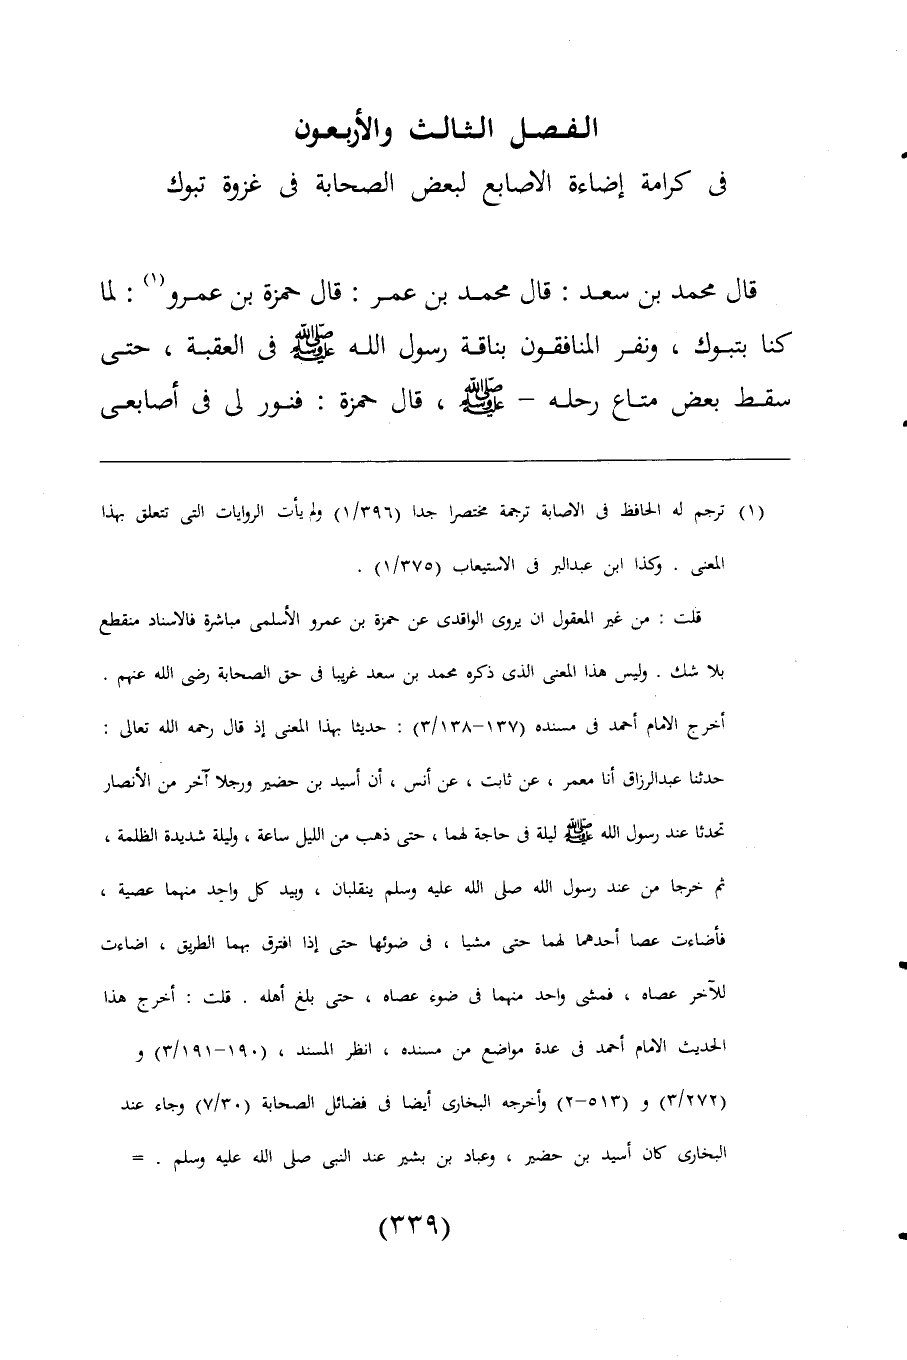 الفصل الثالث والأربعون
فى كرامة إضاءة الاصابع لبعض الصحابة فى غزوة تبوك
قال محمد بن سعد : قال محمد بن عمر : قال حمزة بن عمرو(١) : لما
كنا بتبوك ، ونفر المنافقون بناقة رسول الله ﷺ فى العقبة ، حتى
سقط بعض متاع رحله – ﷺ ، قال حمزة : فنور لى فى أصابعى
(١) ترجم له الحافظ فى الاصابة ترجمة مختصرا جدا (١/٣٩٦) ولم يأت الروايات التى تتعلق بهذا
المعنى . وكذا ابن عبدالبر فى الاستيعاب (١/٣٧٥) .
قلت : من غير المعقول ان يروى الواقدى عن حمزة بن عمرو الأسلمى مباشرة فالاسناد منقطع
بلا شك . وليس هذا المعنى الذى ذكره محمد بن سعد غريبا فى حق الصحابة رضى الله عنهم .
أخرج الامام أحمد فى مسنده (١٣٧–٣/١٣٨) : حديثا بهذا المعنى إذ قال رحمه الله تعالى :
حدثنا عبدالرزاق أنا معمر ، عن ثابت ، عن أنس ، أن أسيد بن حضير ورجلا آخر من الأنصار
تحدثا عند رسول الله ﷺ ليلة فى حاجة لهما ، حتى ذهب من الليل ساعة ، وليلة شديدة الظلمة ،
ثم خرجا من عند رسول الله صلى الله عليه وسلم ينقلبان ، وبيد كل واحد منهما عصية ،
فأضاءت عصا أحدهما لهما حتى مشيا ، فى ضوئها حتى إذا افترق بهما الطريق ، اضاءت
للآخر عصاه ، فمشى واحد منهما فى ضوء عصاه ، حتى بلغ أهله . قلت : أخرج هذا
الحديث الامام أحمد فى عدة مواضع من مسنده ، انظر المسند ، (١٩٠–٣/١٩١) و
(٣/٢٧٢) و (٥١٣–٢) وأخرجه البخارى أيضا فى فضائل الصحابة (٧/٣٠) وجاء عند
البخارى كان أسيد بن حضير ، وعباد بن بشير عند النبى صلى الله عليه وسلم . =
(٣٣٩)